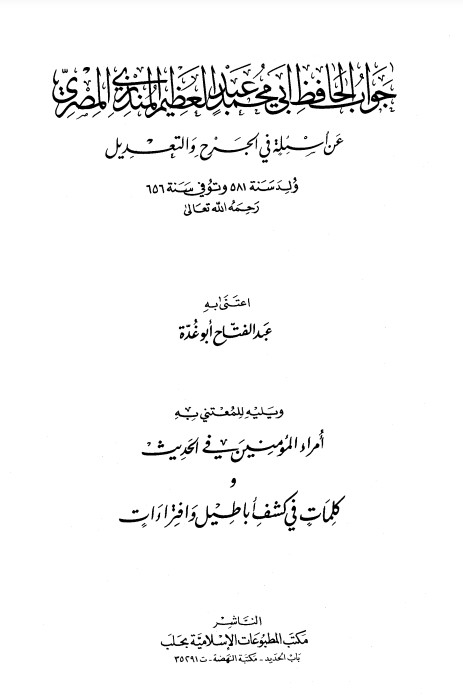 جَوَابُ الحَافِظِ أَبِي مُحَمَّد عَبْدِ العَظِيمِ المُنْذِرِيِّ المِصْرِيِّ
عَنْ أَسْئِلَة فِي الجَرْحِ وَالتَّعْدِيل
وُلِدَ سَنَة ٥٨١ وَتُوُفِّي سَنَة ٦٥٦
رَحِمَهُ اللهُ تَعَالَى
اعْتَنَى بِهِ
عَبد الفتَّاح أبُو غُدَّة
وَيَلِيهِ لِلْمُعْتَنِي بِهِ
أُمَرَاء المُؤْمِنِينَ فِي الحَدِيث
و
كَلِمَاتٌ فِي كَشْفِ أَبَاطِيلَ وَافْتِرَاءَاتٍ
النَّاشِر
مَكتَب المَطبُوعَات الإسْلاميَّة بِحَلَب
بَابُ الحَديد - مَكتبَة النَّهضَة - ت ٣٥٢٩١